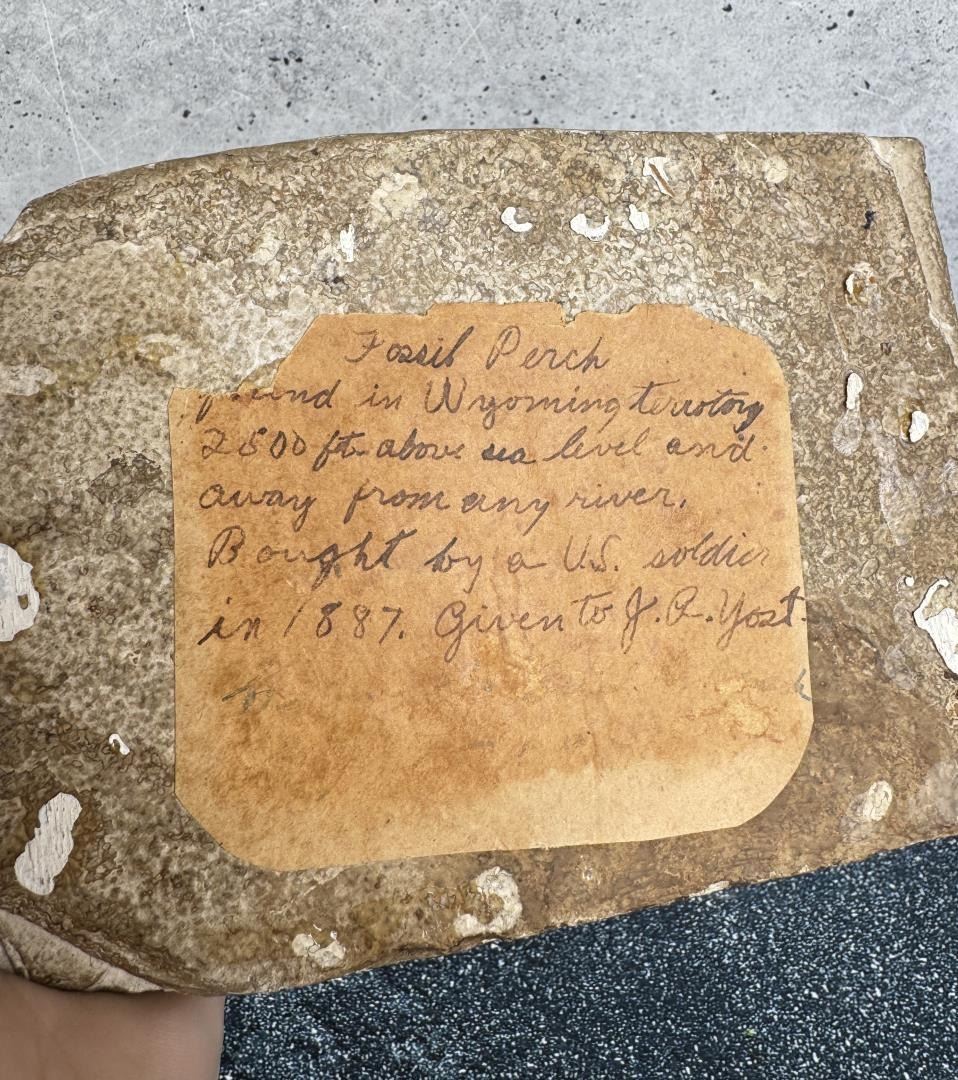 Fossil Perch
found in Wyoming territory
2500 ft. above sea level and
away from any river.
Bought by a U.S. soldier
in 1887. Given to J. R. Yost.